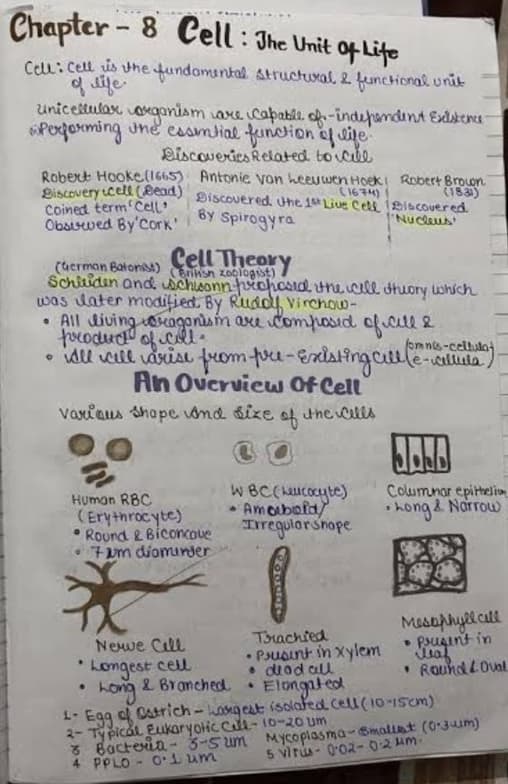 Chapter - 8 Cell : The Unit Of Life
Cell : Cell is the fundamental structural & functional unit
of life.
Unicellular organism are capable of - independent Existence
& Performing the essential function of life.
Discoveries Related to cell
Robert Hooke (1665)
Discovery cell (Dead)
Coined term 'Cell'
Observed By 'Cork'
Antonie Van Leeuwen Hoek
(1674)
Discovered the 1st Live Cell
By Spirogyra
Robert Brown
(1831)
Discovered
'Nucleus'
Cell Theory
(German Botonist) (British zoologist)
Schleiden and Schwann proposed the cell theory which
was later modified By Rudolf Virchow -
• All living oragonism are composed of cell &
product of cell.
• All cell arise from pre-Existing cell (omnis-cellula
e-cellula)
An Overview Of Cell
Various shape and size of the cells
Human RBC
(Erythrocyte)
• Round & Biconcave
• 7 um diameter
WBC (Leucocyte)
• Amoeboid /
Irregular shape
Columnar epithelium
• Long & Narrow
Nerve Cell
• Longest cell
• Long & Branched
Trachied
• Present in Xylem
• dead cell
• Elongated
Mesophyll cell
• Present in
leaf
• Round & Oval
1- Egg of Ostrich - Largest isolated cell (10-15cm)
2- Typical Eukaryotic Cell - 10-20 um
3 Bacteria - 3-5 um Mycoplasma - Smallest (0.3 um)
4 PPLO - 0.1 um 5 Virus - 0.02 - 0.2 um.